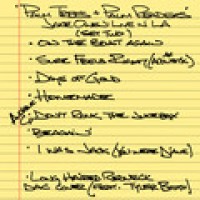 "Palm Trees + Palm Readers"
Jake Owen Live in LA
(Set Two)
• On the Boat Again
• Sure Feels Right (Acoustic)
• Days of Gold
• Homemade
• Don't Rock the Jukebox
• "Beachin'"
• I Was Jack (You Were Diane)
• Long Haired Redneck
DAC Cover (feat. Tyler